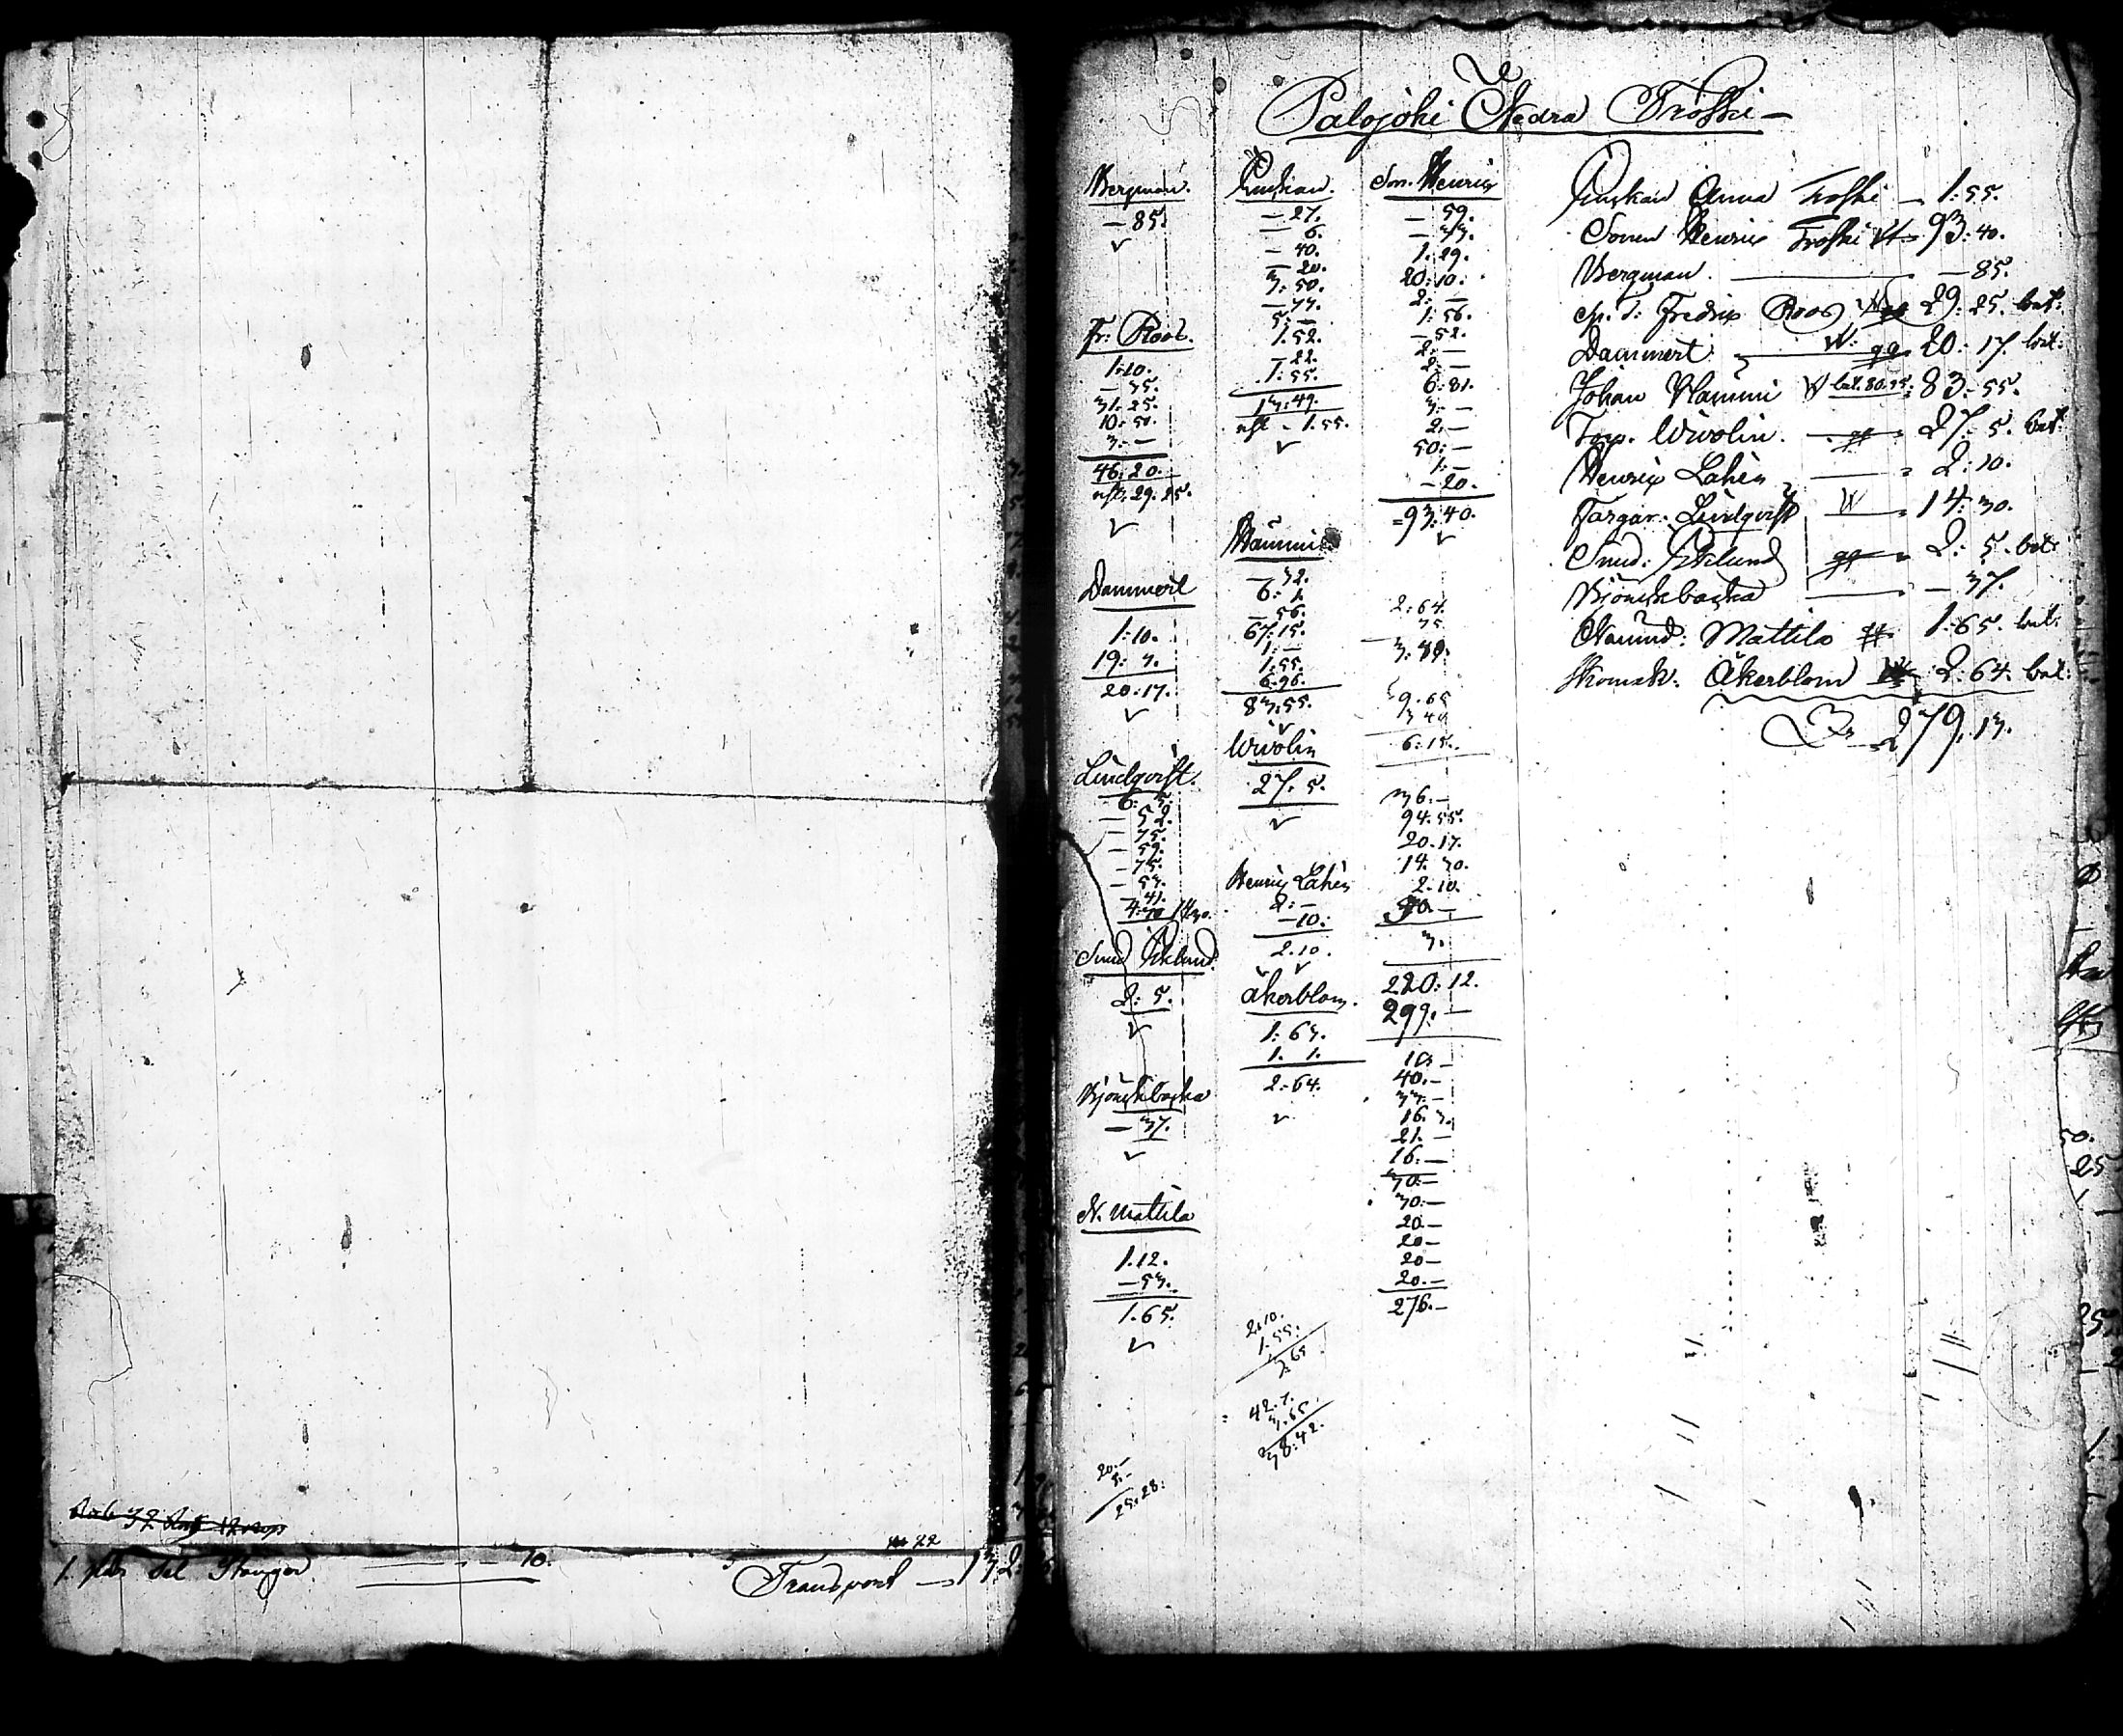 1. 10.
Transport — 132.
Palojoki Nedra Troski —
Bergman.
— 85.
Fr: Roos.
1:10.
— 35.
31:25.
10:50.
3:—
46:20.
29:25.
Dammert
1:10.
19:7.
20:17.
Lindqvist.
6:5.
— 52.
— 75.
— 59.
— 75.
— 53.
— 41.
14:30.
Smed Eklund.
2:5.
Björnsbacka
— 37.
N. Mattila
1.12.
— 53.
1.65.
Enskan.
— 27.
— 6.
— 40.
— 20.
3:50.
— 77.
5:—
1.52.
— 22.
1:55.
13:49.
1.55.
Hammi
— 32.
6:1.
— 56.
67:15.
1:—
1:55.
6.96.
83:55.
Wivolin
27.5.
Henrix Lahën
2:—
— 10:
2.10.
Åkerblom.
1:63.
1.1.
2:64.
2.10.
1.55.
3.65
42.7.
3.65.
38:42.
20.—
5.—
25:28:
Son. Henrix
— 59.
— 33.
1:29.
20:10.
2:—
1:56.
— 52.
2:—
2:—
6:81.
3:—
2:—
50:—
1:—
— 20.
=93:40.
2:64.
75.
3:49.
9.65
3 49
6:15.
36:—
94:55.
20.17.
14.30.
2.10.
3.
220:12.
299.—
10.—
40.—
33.—
16.3.
21.—
16.—
30.—
30.—
20.—
20—
20—
20.—
276.—
Enskan Anna Troski — 1:55.
Sonen Henrix Troski 93:40.
Bergman. — 85.
Fredrix Roos 29:25. bet:
Dammert. 20:17. bet:
Johan Hammi bet. 80.75. 83:55.
Torp. Wivolin. 27:5. bet:
Henrix Lahën 2:10.
Färgar. Lindqvist 14:30.
Smed: Eklund 2:5. bet:
Björnsbacka — 37.
Nämnd: Mattila 1:65. bet.
Skomak. Åkerblom 2:64. bet:
279.13.